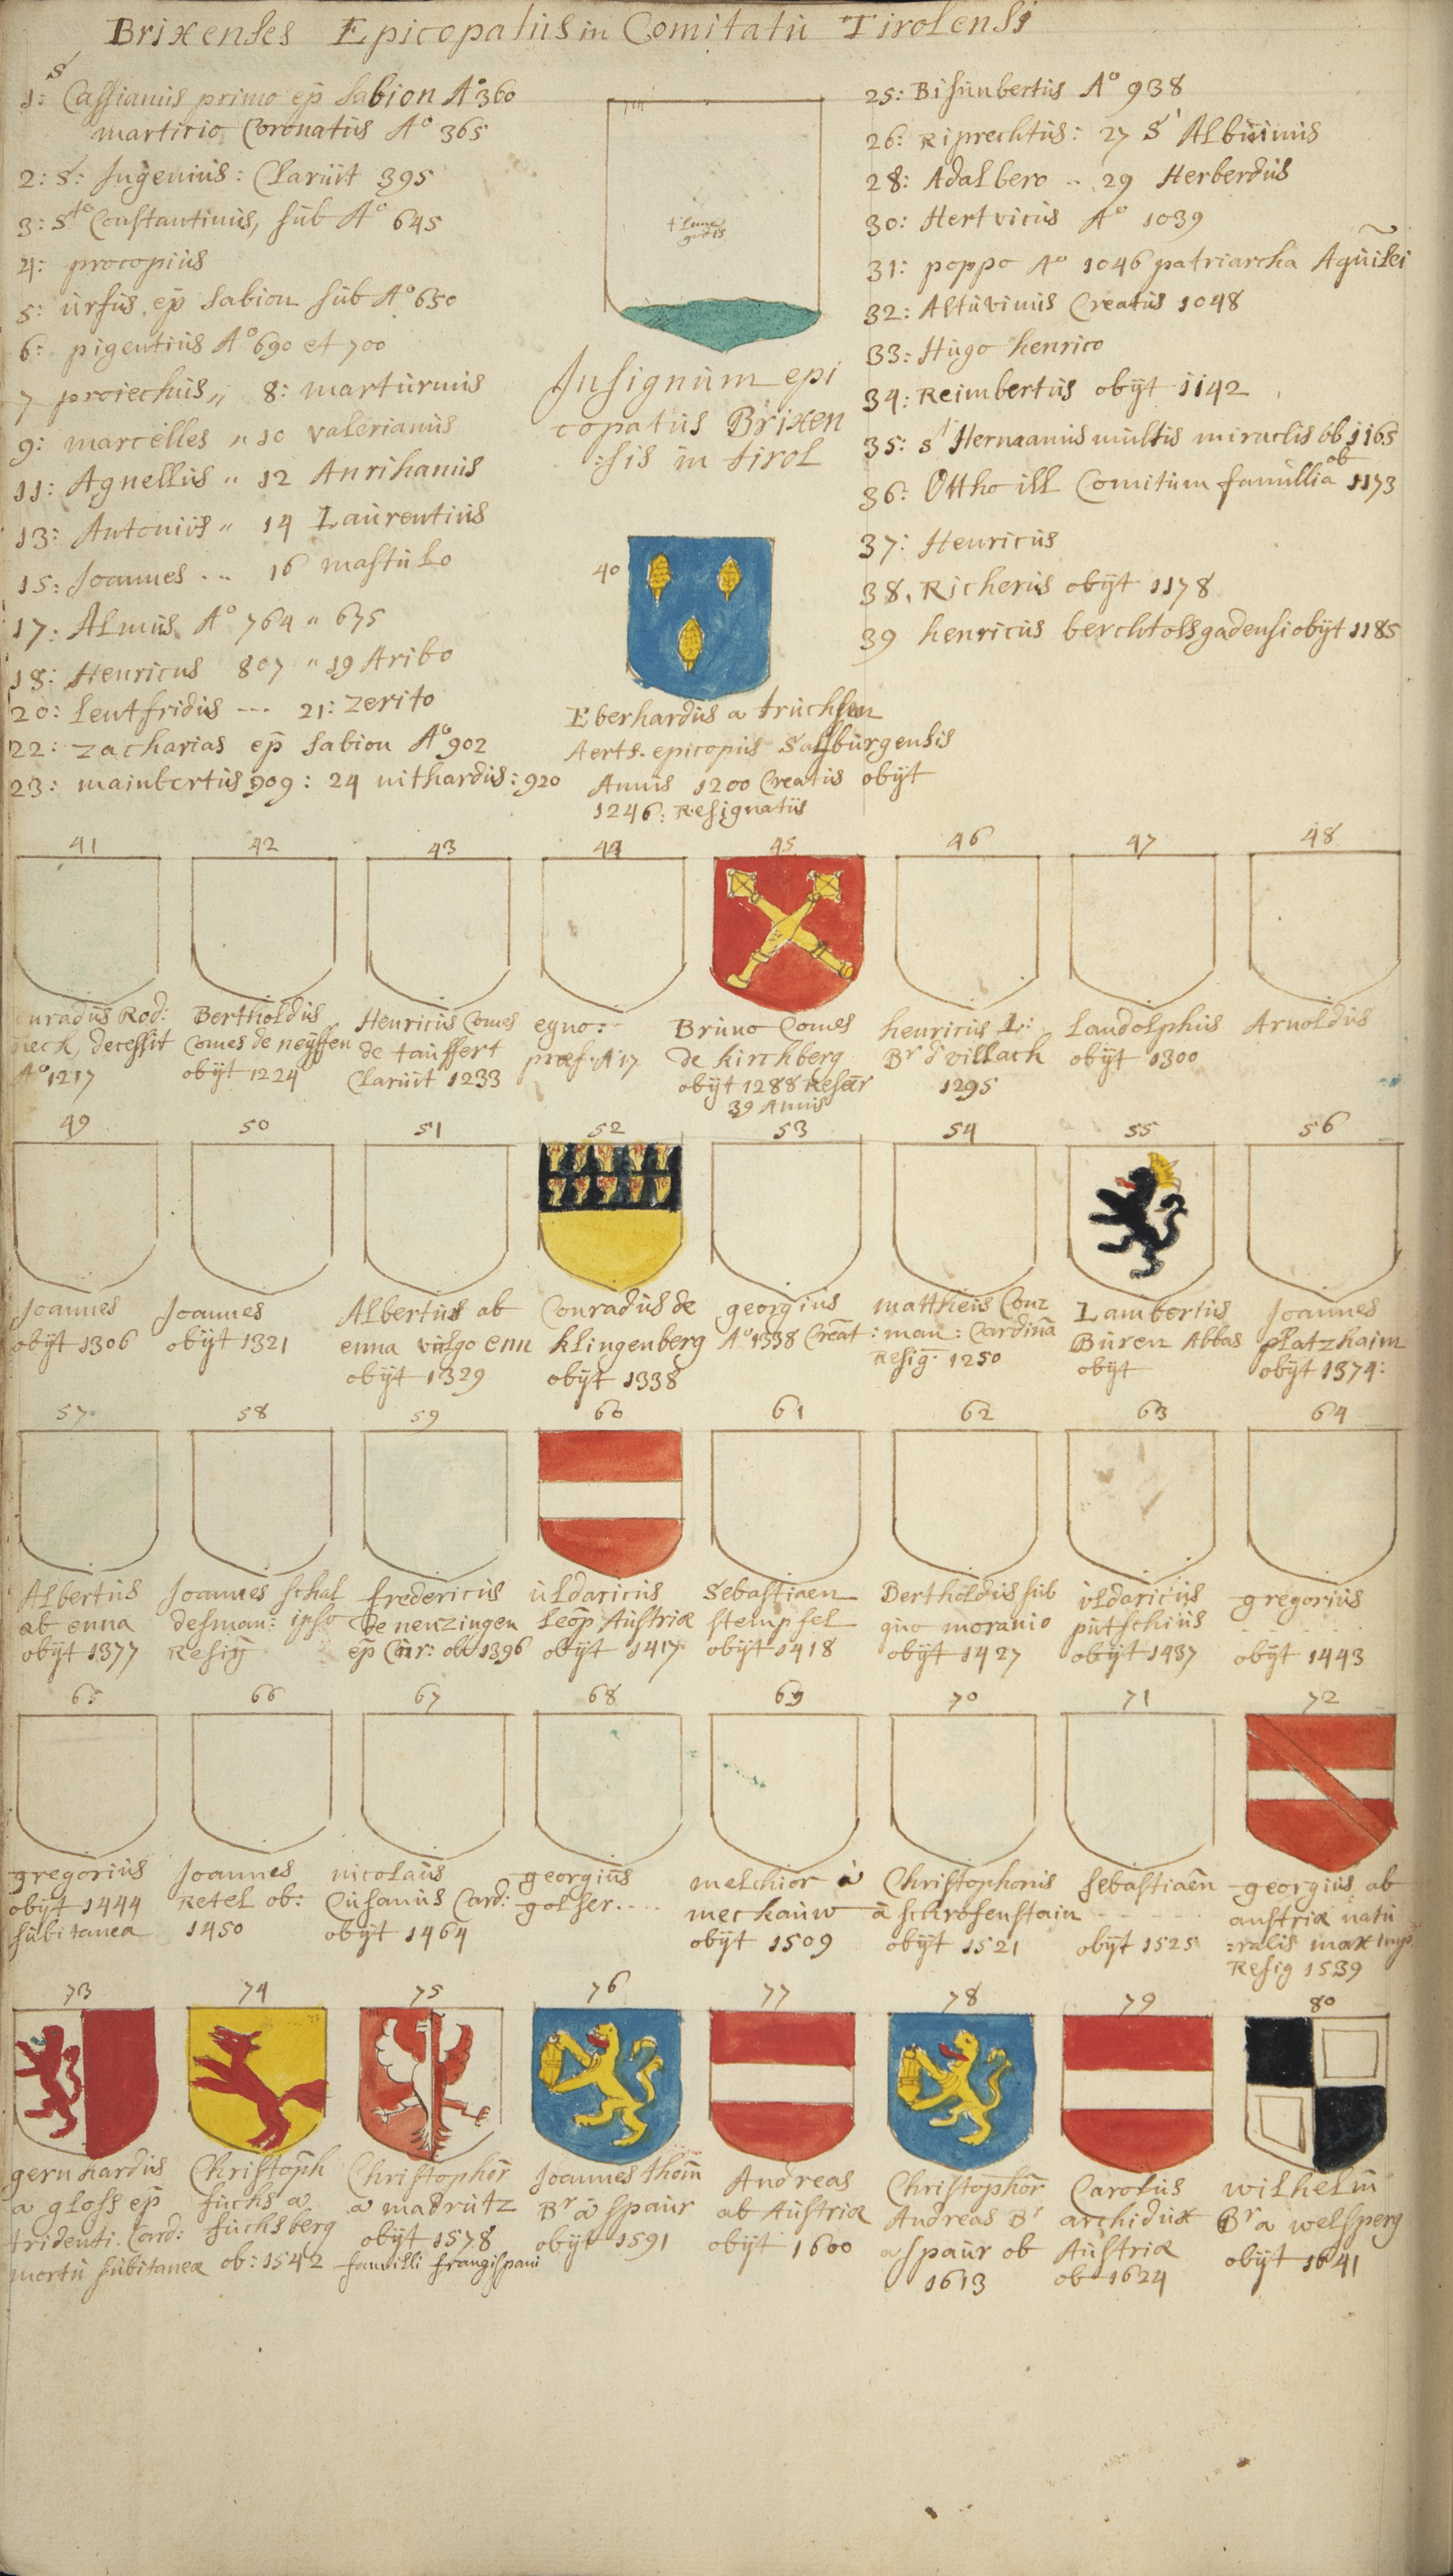 Brixenses Epicopatus in Comitatu Tirolensi
S
1: Cassianus primo ep̄ Sabion A° 360
martirio Coronatus A° 365
2: S: Ingenius: Claruit 395
3: Sto Constantinus, sub A° 645
4: procopius
5: ursus ep̄ Sabion sub A° 650
6: pigentius A° 690 et 700
7 proiechus „ 8: marturnus
9: marcelles „ 10 valerianus
11: Agnellus „ 12 Anrihanus
13: Antonius „ 14 Laurentius
15: Joannes .. „ 16 mastulo
17: Almus A° 764 „ 675
18: Henricus 807 „ 19 Aribo
20: Leutfridus --- 21: Zerito
22: Zacharias ep̄ Sabion A° 902
23: mainbertus 909: 24 nithardus: 920
Insignum epi
copatus Brixen
:sis in tirol
40
Eberhardus a truchsen
Aerts. epicopus Salsburgensis
Annis 1200 Creatis obÿt
1246: Resignatus
25: Bisunbertus A° 938
26: Riprechtus: 27 S Albuinus
28: Adalbero .. 29 Herberdus
30: Hertvicus A° 1039
31: poppo A° 1046 patriarcha Aquilei
32: Altuvinus Creatus 1048
33: Hugo henrico
34: Reimbertus obÿt 1142
35: S Hermanus multis miraclis ob 1165
36: Ottho ill Comitum familia ob 1173
37: Henricus
38. Richerus obÿt 1178
39 henricus berchtolsgadensi obÿt 1185
41 42 43 44 45 46 47 48
nradus Rod:
neck, decessit
A° 1217
Bertholdus
Comes de neÿffen
obÿt 1224
Henricus Comes
de tauffert
Claruit 1233
egno:
præf. A 17
Bruno Comes
de Kirchberg
obÿt 1288 Reseer
39 Annis
henricus I:
Br d villach
1295
Landolphus
obÿt 1300
Arnoldus
49 50 51 52 53 54 55 56
Joannes
obÿt 1306
Joannes
obÿt 1321
Albertus ab
enna vulgo enn
obÿt 1329
Conradus de
Klingenberg
obÿt 1338
georgius
A° 1338 Creat
mattheus Conz
: man: Cardina
Resig: 1250
Lambertus
Buren Abbas
obÿt
Joannes
platzhaim
obÿt 1374:
57 58 59 60 61 62 63 64
Albertus
ab enna
obÿt 1377
Joannes schal
desman: ipso
Resig
fredericus
de nenzingen
ep̄ Cur: ob 1396
uldaricus
Leop Austriæ
obÿt 1417
Sebastiaen
stempfel
obÿt 1418
Bertholdus sub
quo moranio
obÿt 1427
uldaricus
putschius
obÿt 1437
gregorius
obÿt 1443
65 66 67 68 69 70 71 72
gregorius
obÿt 1444
subitanea
Joannes
Retel ob:
1450
nicolaus
Cusanus Card:
obÿt 1464
georgius
golser....
melchior à
meckauw
obÿt 1509
Christophorus
à schrofenstain
obÿt 1521
Sebastiaen
obÿt 1525
georgius ab
austria natu
:ralis max imp
Resig 1539
73 74 75 76 77 78 79 80
gernhardus
a gloss ep̄
tridenti. Card:
mortu subitanea
Christoph
fuchs a
fuchsberg
ob: 1542
Christophor
a madrutz
obÿt 1578
familli frangispani
Joannes thom
Br a spaur
obÿt 1591
Andreas
ab Austria
obÿt 1600
Christophor
Andreas Br
a spaur ob
1613
Carolus
archidux
Austriæ
ob 1624
wilhelm
Br a welsperg
obÿt 1641